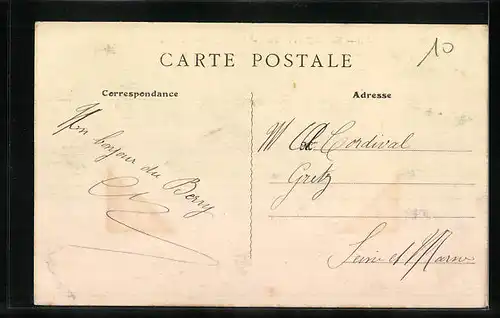 10
CARTE POSTALE
Correspondance
Adresse
Un bonjour du Berry
M Cordival
Gretz
Seine et Marne